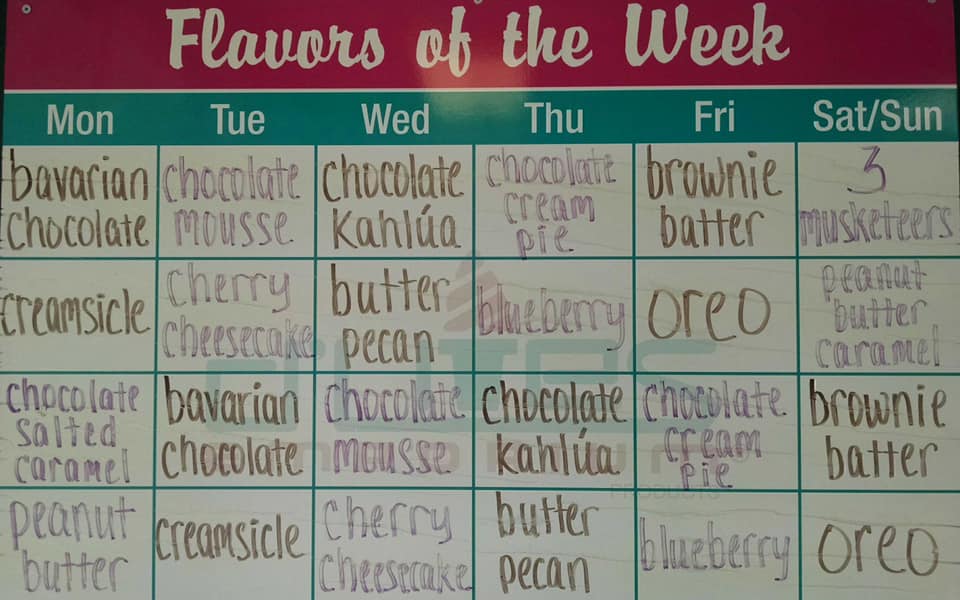 Flavors of the Week
Mon Tue Wed Thu Fri Sat/Sun
bavarian chocolate chocolate chocolate brownie 3
chocolate mousse Kahlúa cream pie batter musketeers
creamsicle cherry butter blueberry oreo peanut butter
cheesecake pecan caramel
chocolate bavarian chocolate chocolate chocolate brownie
salted caramel chocolate mousse kahlúa cream pie batter
peanut creamsicle cherry butter blueberry oreo
butter cheesecake pecan
PRODUCTS